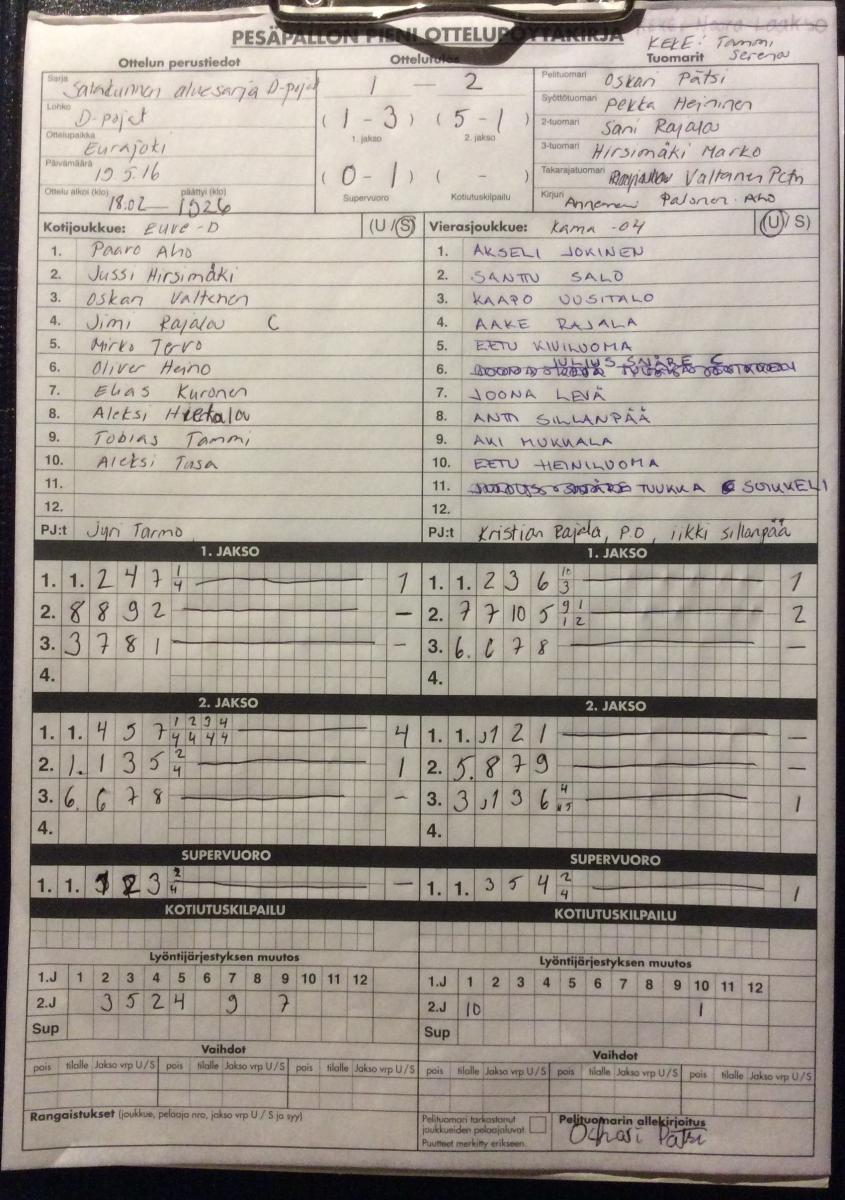 PESÄPALLON PIENI OTTELUPÖYTÄKIRJA
KEKE: Tammi
Serena
Ottelun perustiedot
Ottelutulos
Tuomarit
Sarja Satakunnan aluesarja D-pojat
Lohko D-pojat
Ottelupaikka Eurajoki
Päivämäärä 19.5.16
Ottelu alkoi (klo) 18.02 — päättyi (klo) 1926
1 — 2
(1 - 3) (5 - 1)
1. jakso 2. jakso
(0 - 1) ( - )
Supervuoro Kotiutuskilpailu
Pelituomari Oskari Pätsi
Syöttötuomari Pekka Heininen
2-tuomari Sani Rajala
3-tuomari Hirsimäki Marko
Takarajatuomari Valtanen
Kirjuri Annemari Palonen-Aho
Kotijoukkue: Eure-D (U / S)
1. Paaro Aho
2. Jussi Hirsimäki
3. Oskari Valtanen
4. Jimi Rajala C
5. Mirko Tervo
6. Oliver Heino
7. Elias Kuronen
8. Aleksi Hietala
9. Tobias Tammi
10. Aleksi Tasa
11.
12.
PJ:t Jyri Tarmo
Vierasjoukkue: Kama -04 (U / S)
1. AKSELI JOKINEN
2. SANTTU SALO
3. KAAPO UUSITALO
4. AAKE RAJALA
5. EETU KIVILUOMA
6. JULIUS SNÄRE C
7. JOONA LEVÄ
8. ANTTI SILLANPÄÄ
9. AKI MUKKALA
10. EETU HEINILUOMA
11. TUUKKA SUIKKELI
12.
PJ:t Kristian Rajala, P.O, iikki sillanpää
1. JAKSO
1. 1. 2 4 7 1/4 1
2. 8 8 9 2 —
3. 3 7 8 1 —
4.
1. JAKSO
1. 1. 2 3 6 10/3 1
2. 7 7 10 5 9/1 1/2 2
3. 6. 6 7 8 —
4.
2. JAKSO
1. 1. 4 5 7 1/4 2/4 3/4 4/4 4
2. 1. 1 3 5 2/4 1
3. 6. 6 7 8 —
4.
2. JAKSO
1. 1. 1 2 1 —
2. 5. 8 7 9 —
3. 3 1 3 6 1
4.
SUPERVUORO
1. 1. 2 3 2/4 —
SUPERVUORO
1. 1. 3 5 4 2/4 1
KOTIUTUSKILPAILU
KOTIUTUSKILPAILU
Lyöntijärjestyksen muutos
1.J 1 2 3 4 5 6 7 8 9 10 11 12
2.J 3 5 2 4 9 7
Sup
Lyöntijärjestyksen muutos
1.J 1 2 3 4 5 6 7 8 9 10 11 12
2.J 10 1
Sup
Vaihdot
pois tilalle Jakso vrp U/S pois tilalle Jakso vrp U/S pois tilalle Jakso vrp U/S
Vaihdot
pois tilalle Jakso vrp U/S pois tilalle Jakso vrp U/S pois tilalle Jakso vrp U/S
Rangaistukset (joukkue, pelaaja nro, jakso vrp U / S ja syy)
Pelituomari tarkastanut
joukkueiden pelaajaluvat.
Puutteet merkitty erikseen.
Pelituomarin allekirjoitus
Oskari Pätsi